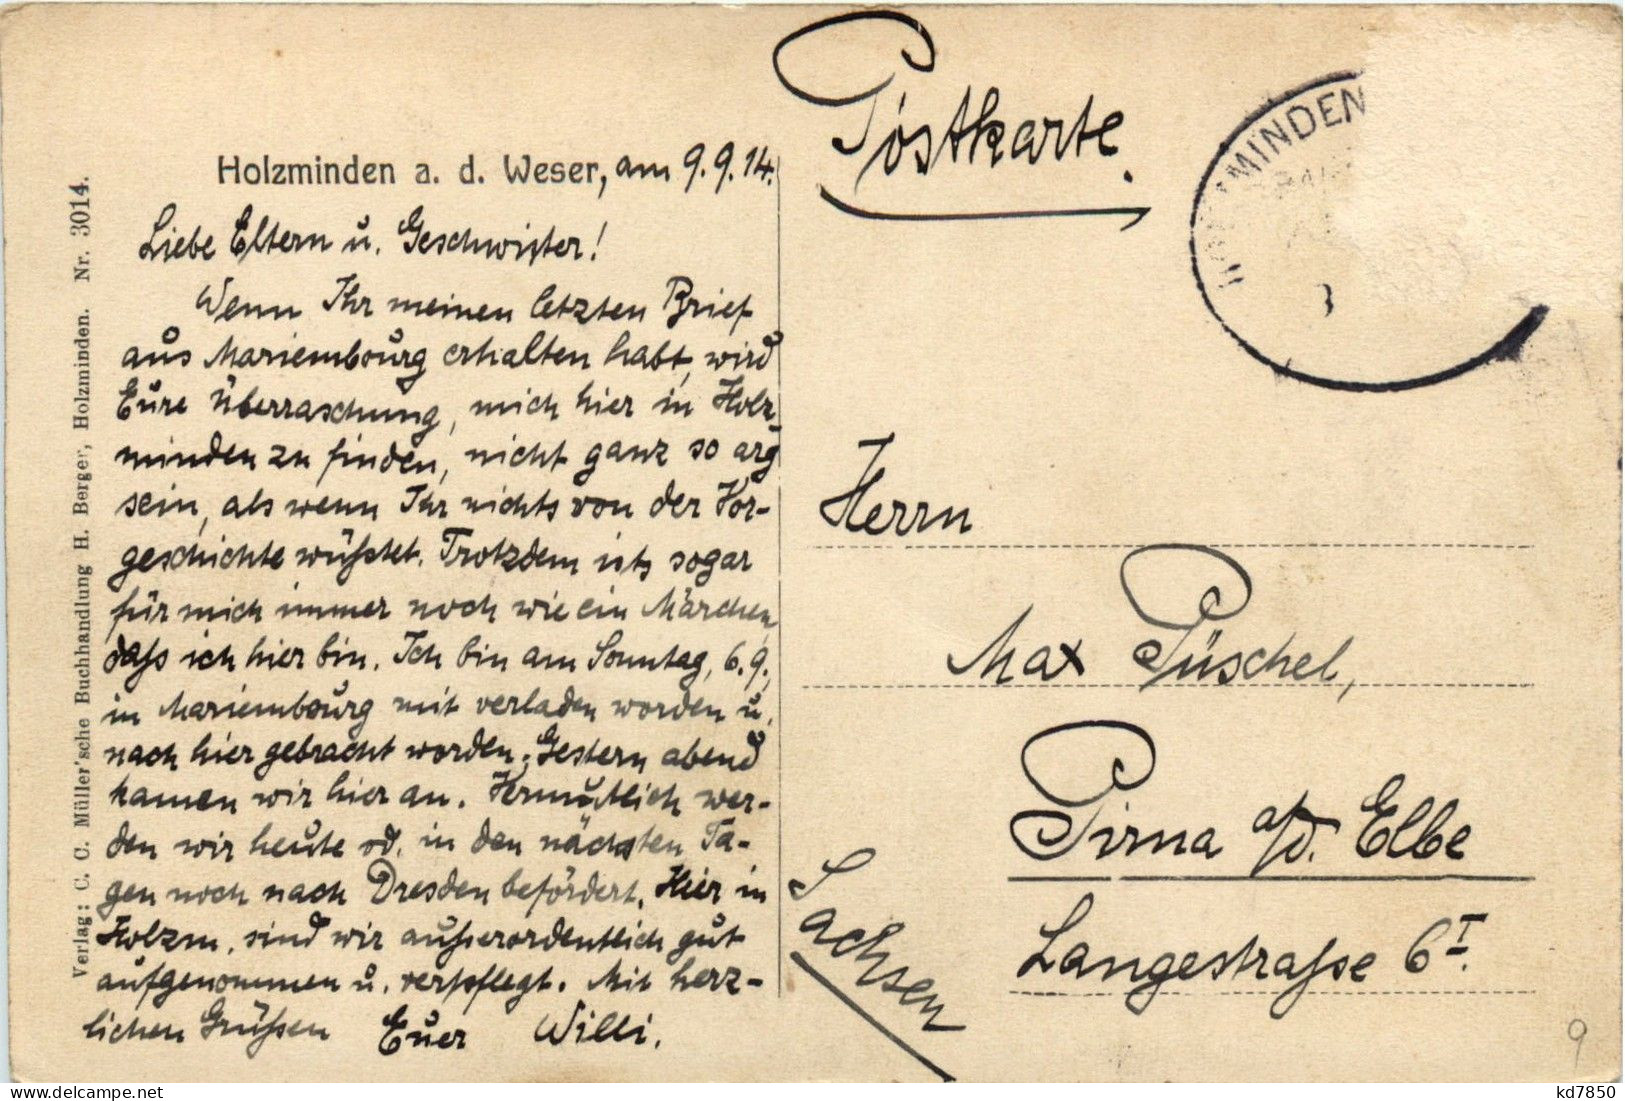 Holzminden a. d. Weser, am 9. 9. 14.
Liebe Eltern u. Geschwister!
Wenn Ihr meinen letzten Brief
aus Mariembourg erhalten habt, wird
Eure Überraschung, mich hier in Holz-
minden zu finden, nicht ganz so arg
sein, als wenn Ihr nichts von der Vor-
geschichte wüßtet. Trotzdem ists sogar
für mich immer noch wie ein Märchen,
daß ich hier bin. Ich bin am Sonntag, 6. 9.,
in Mariembourg mit verladen worden u.
nach hier gebracht worden. Gestern abend
kamen wir hier an. Vermutlich wer-
den wir heute od. in den nächsten Ta-
gen noch nach Dresden befördert. Hier in
Holzm. sind wir außerordentlich gut
aufgenommen u. verpflegt. Mit herz-
lichen Grüßen Euer Willi.
Verlag: C. C. Müller'sche Buchhandlung H. Berger, Holzminden. Nr. 3014.
Postkarte.
HOLZMINDEN
Herrn
Max Püschel,
Pirna a/d. Elbe
Langestraße 6 I.
Sachsen
9
kd7850